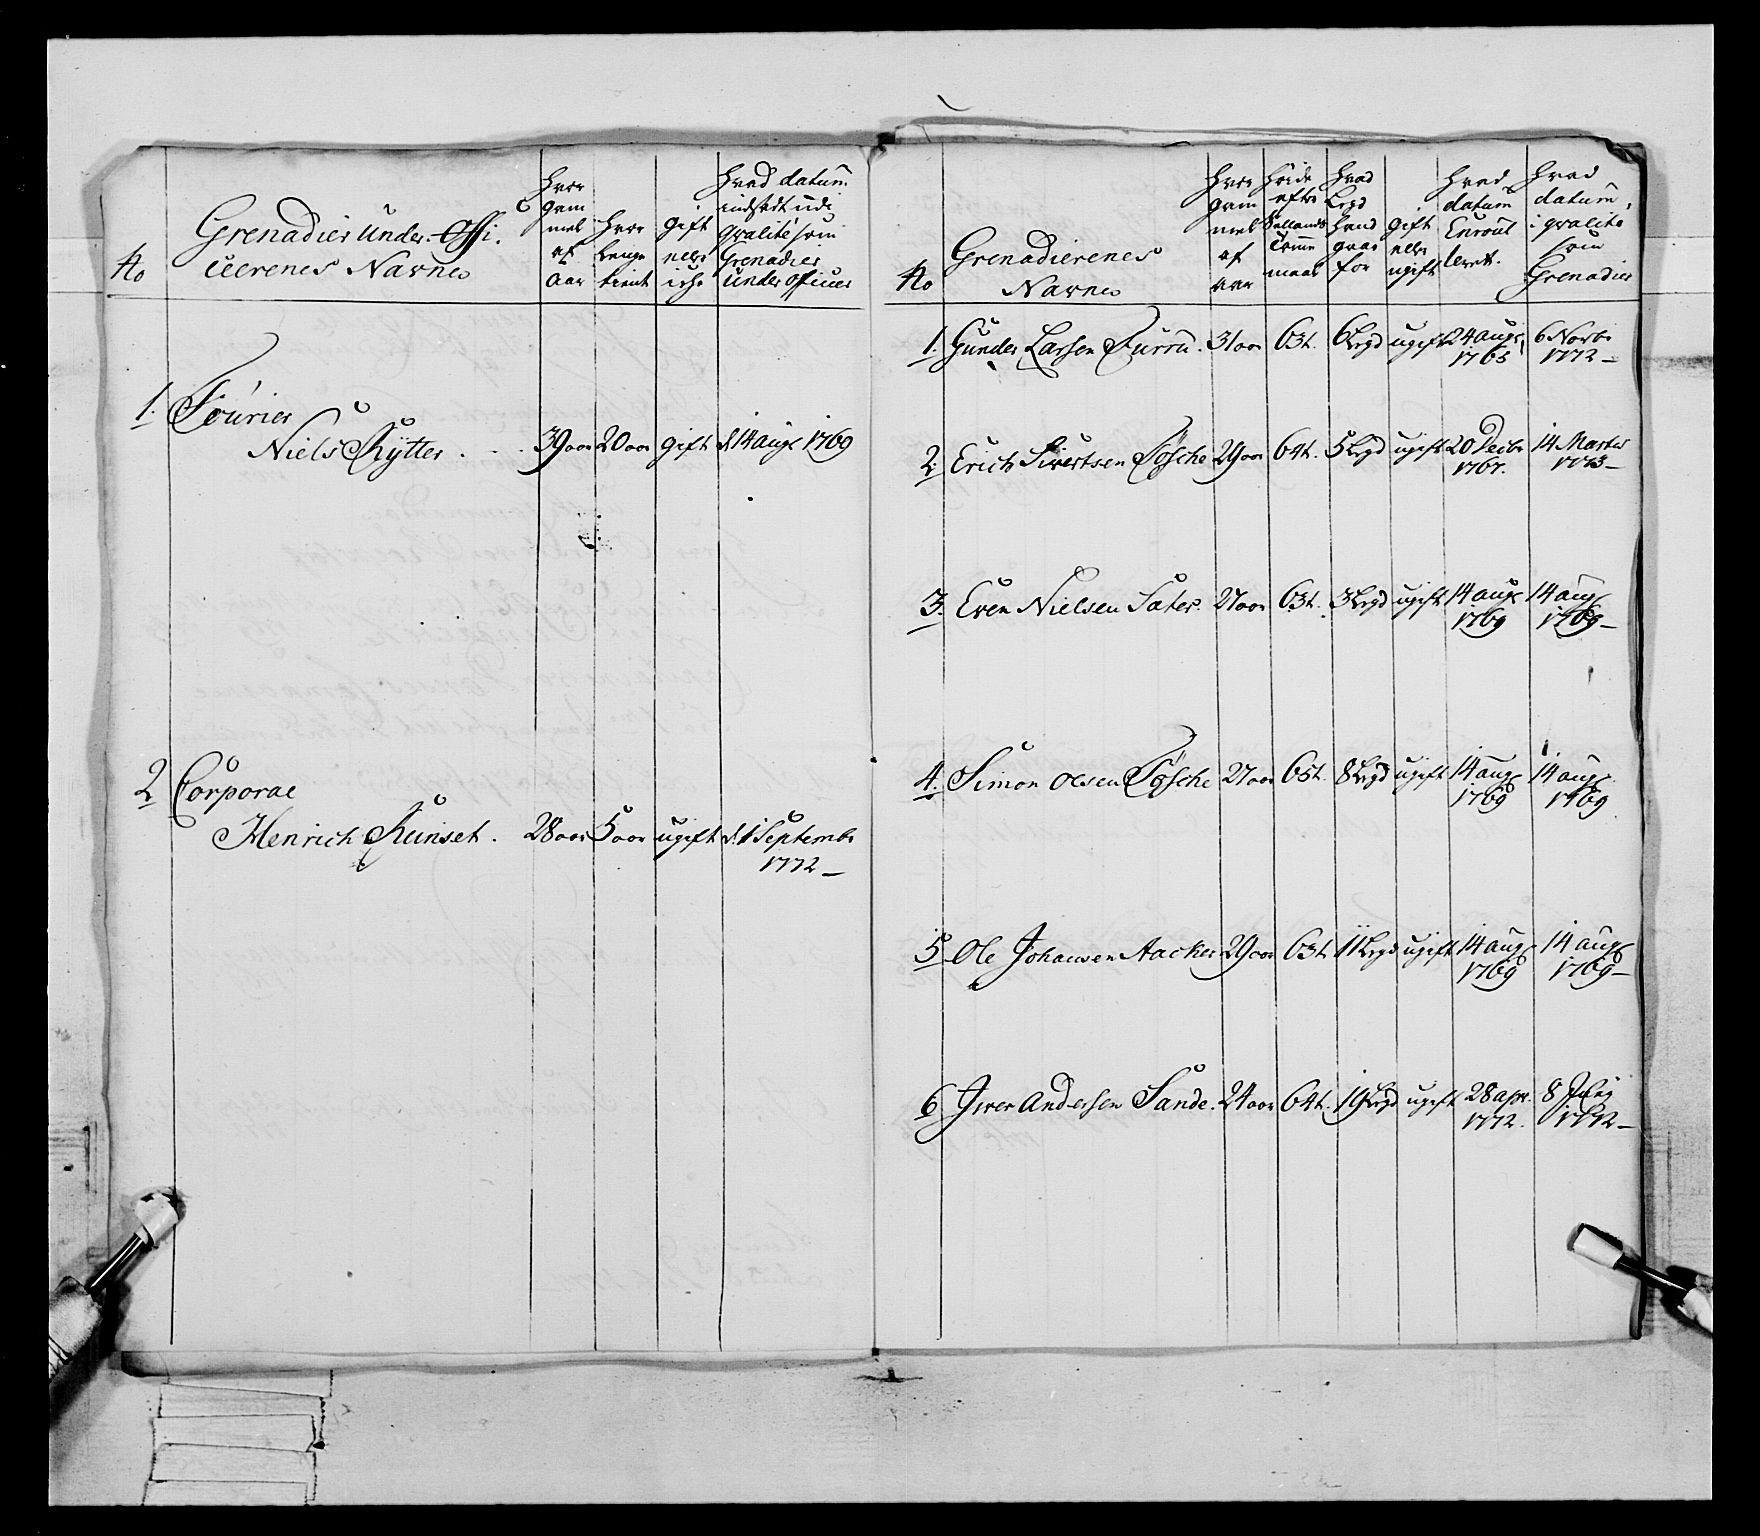 No
Grenadier Under-Offi-
cierenes Navne
hvor
gam
mel
af
aar
hvor
lenge
tient
gift
eller
icke
hvad datum
indsadt udi
qvalité som
Grenadier
Under Officier
1. Fourier
Niels Rÿtter . . . 39 aar 20 aar gift d. 14 aug. 1769
2 Corporal
Henrich Runset . 28 aar 5 aar ugift d. 1 Septembr
1772 —
No
Grenadierenes
Navne
hvor
gam
mel
af
aar
höide
efter
Sællands
Tomme
maal
hvad
Legd
hand
gaar
for
gift
eller
ugift
hvad
datum
Enroul
leret.
hvad
datum
i qvalite
som
Grenadier
1. Gunder Larsen Furru. 31 aar 63 t. 6 Legd ugift 24 augs 6 Novbr
1765 1772 —
2. Erich Sivertsen Tösche 29 aar 64 t. 5 Legd ugift 20 Decbr 14 Martis
1767. 1773 —
3. Even Nielsen Sater. 27 aar 63 t. 3 Legd ugift 14 aug. 14 aug.
1769 1769 —
4. Simon Olsen Tösche 27 aar 65 t. 8 Legd ugift 14 aug. 14 aug.
1769 1769
5 Ole Johansen Aacker 29 aar 63 t. 11 Legd ugift 14 aug. 14 aug.
1769 1769 —
6 Iver Andersen Sande. 24 aar 64 t. 19 Legd ugift 28 apr. 8 Julij
1772. 1772 —